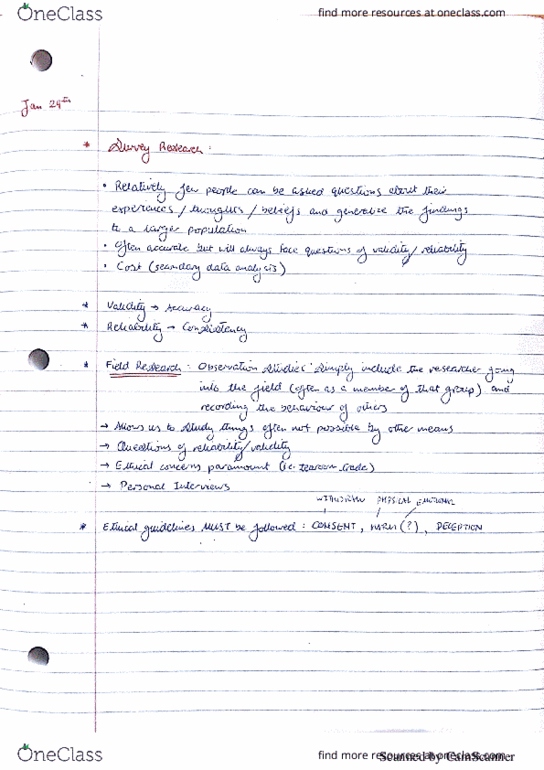 OneClass
find more resources at oneclass.com
Jan 29th
* Survey Research:
• Relatively few people can be asked questions about their
experiences/thoughts/beliefs and generalize the findings
to a larger population
• Often accurate but will always face questions of validity/reliability
• Cost (secondary data analysis)
* Validity → Accuracy
* Reliability → Consistency
* Field Research: Observation Studies simply include the researcher going
into the field (often as a member of that group) and
recording the behaviour of others
→ Allows us to study things often not possible by other means
→ Questions of reliability/validity
→ Ethical concerns paramount (ie. tearoom trade)
→ Personal Interviews
WITHDRAW PHYSICAL EMOTIONAL
* Ethical guidelines MUST be followed: CONSENT, HARM(?), DECEPTION
OneClass
find more resources at oneclass.com
Scanned by CamScanner